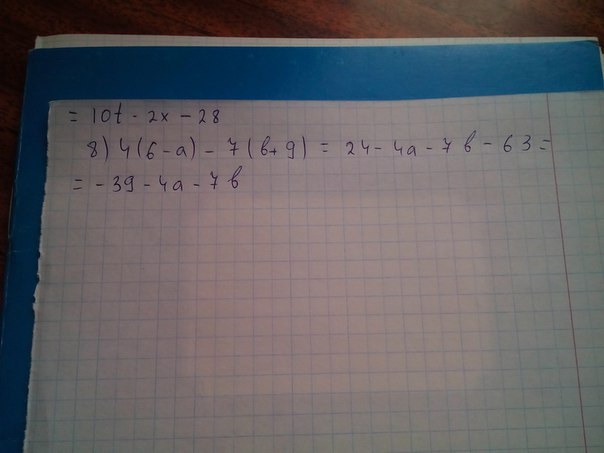 = 10t - 2x - 28
8) 4(6-a) - 7(в+9) = 24 - 4a - 7в - 63 =
= - 39 - 4a - 7в